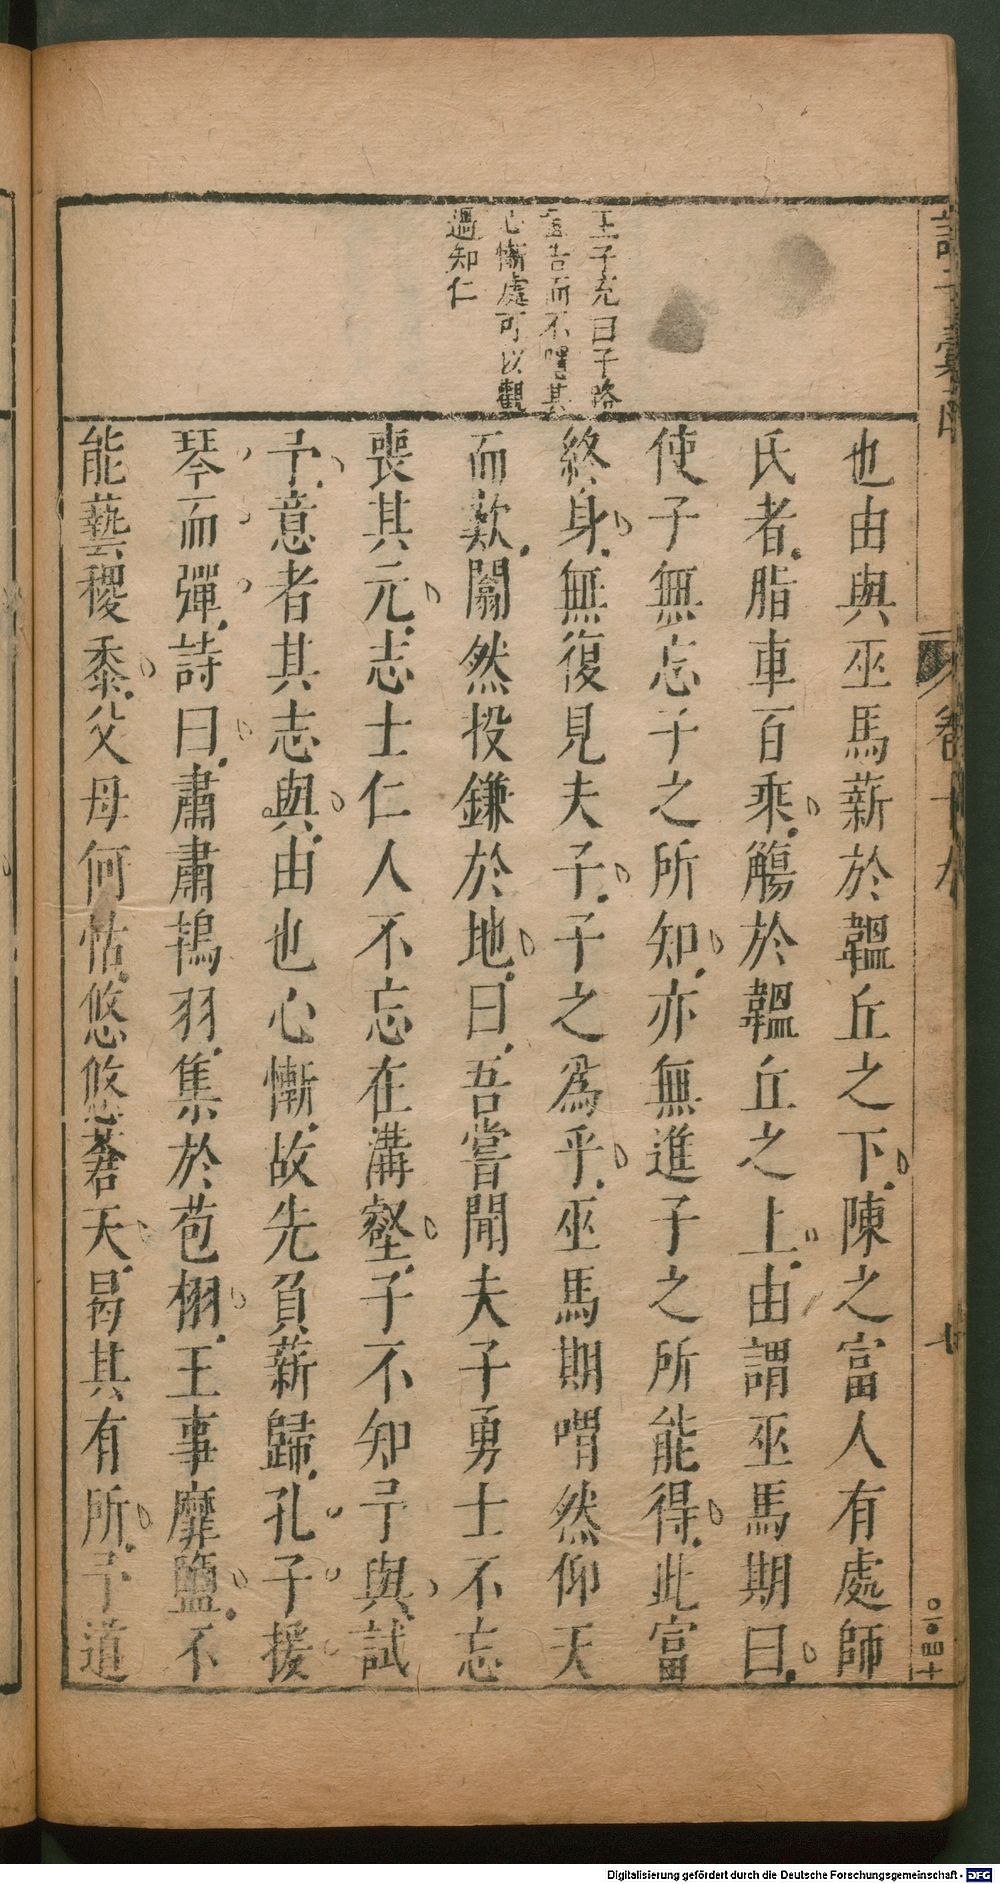 王子充曰子路
告而不嘿其
心慚處可以觀
過知仁
也由與巫馬薪於韞丘之下陳之富人有處師
氏者脂車百乘觴於韞丘之上由謂巫馬期曰
使子無忘子之所知亦無進子之所能得此富
終身無復見夫子子之為乎巫馬期喟然仰天
而歎闟然投鎌於地曰吾嘗聞夫子勇士不忘
喪其元志士仁人不忘在溝壑子不知予與試
予意者其志與由也心慚故先負薪歸孔子援
琴而彈詩曰肅肅鴇羽集於苞栩王事靡盬不
能藝稷黍父母何怙悠悠蒼天曷其有所予道
卷十
Digitalisierung gefördert durch die Deutsche Forschungsgemeinschaft - DFG